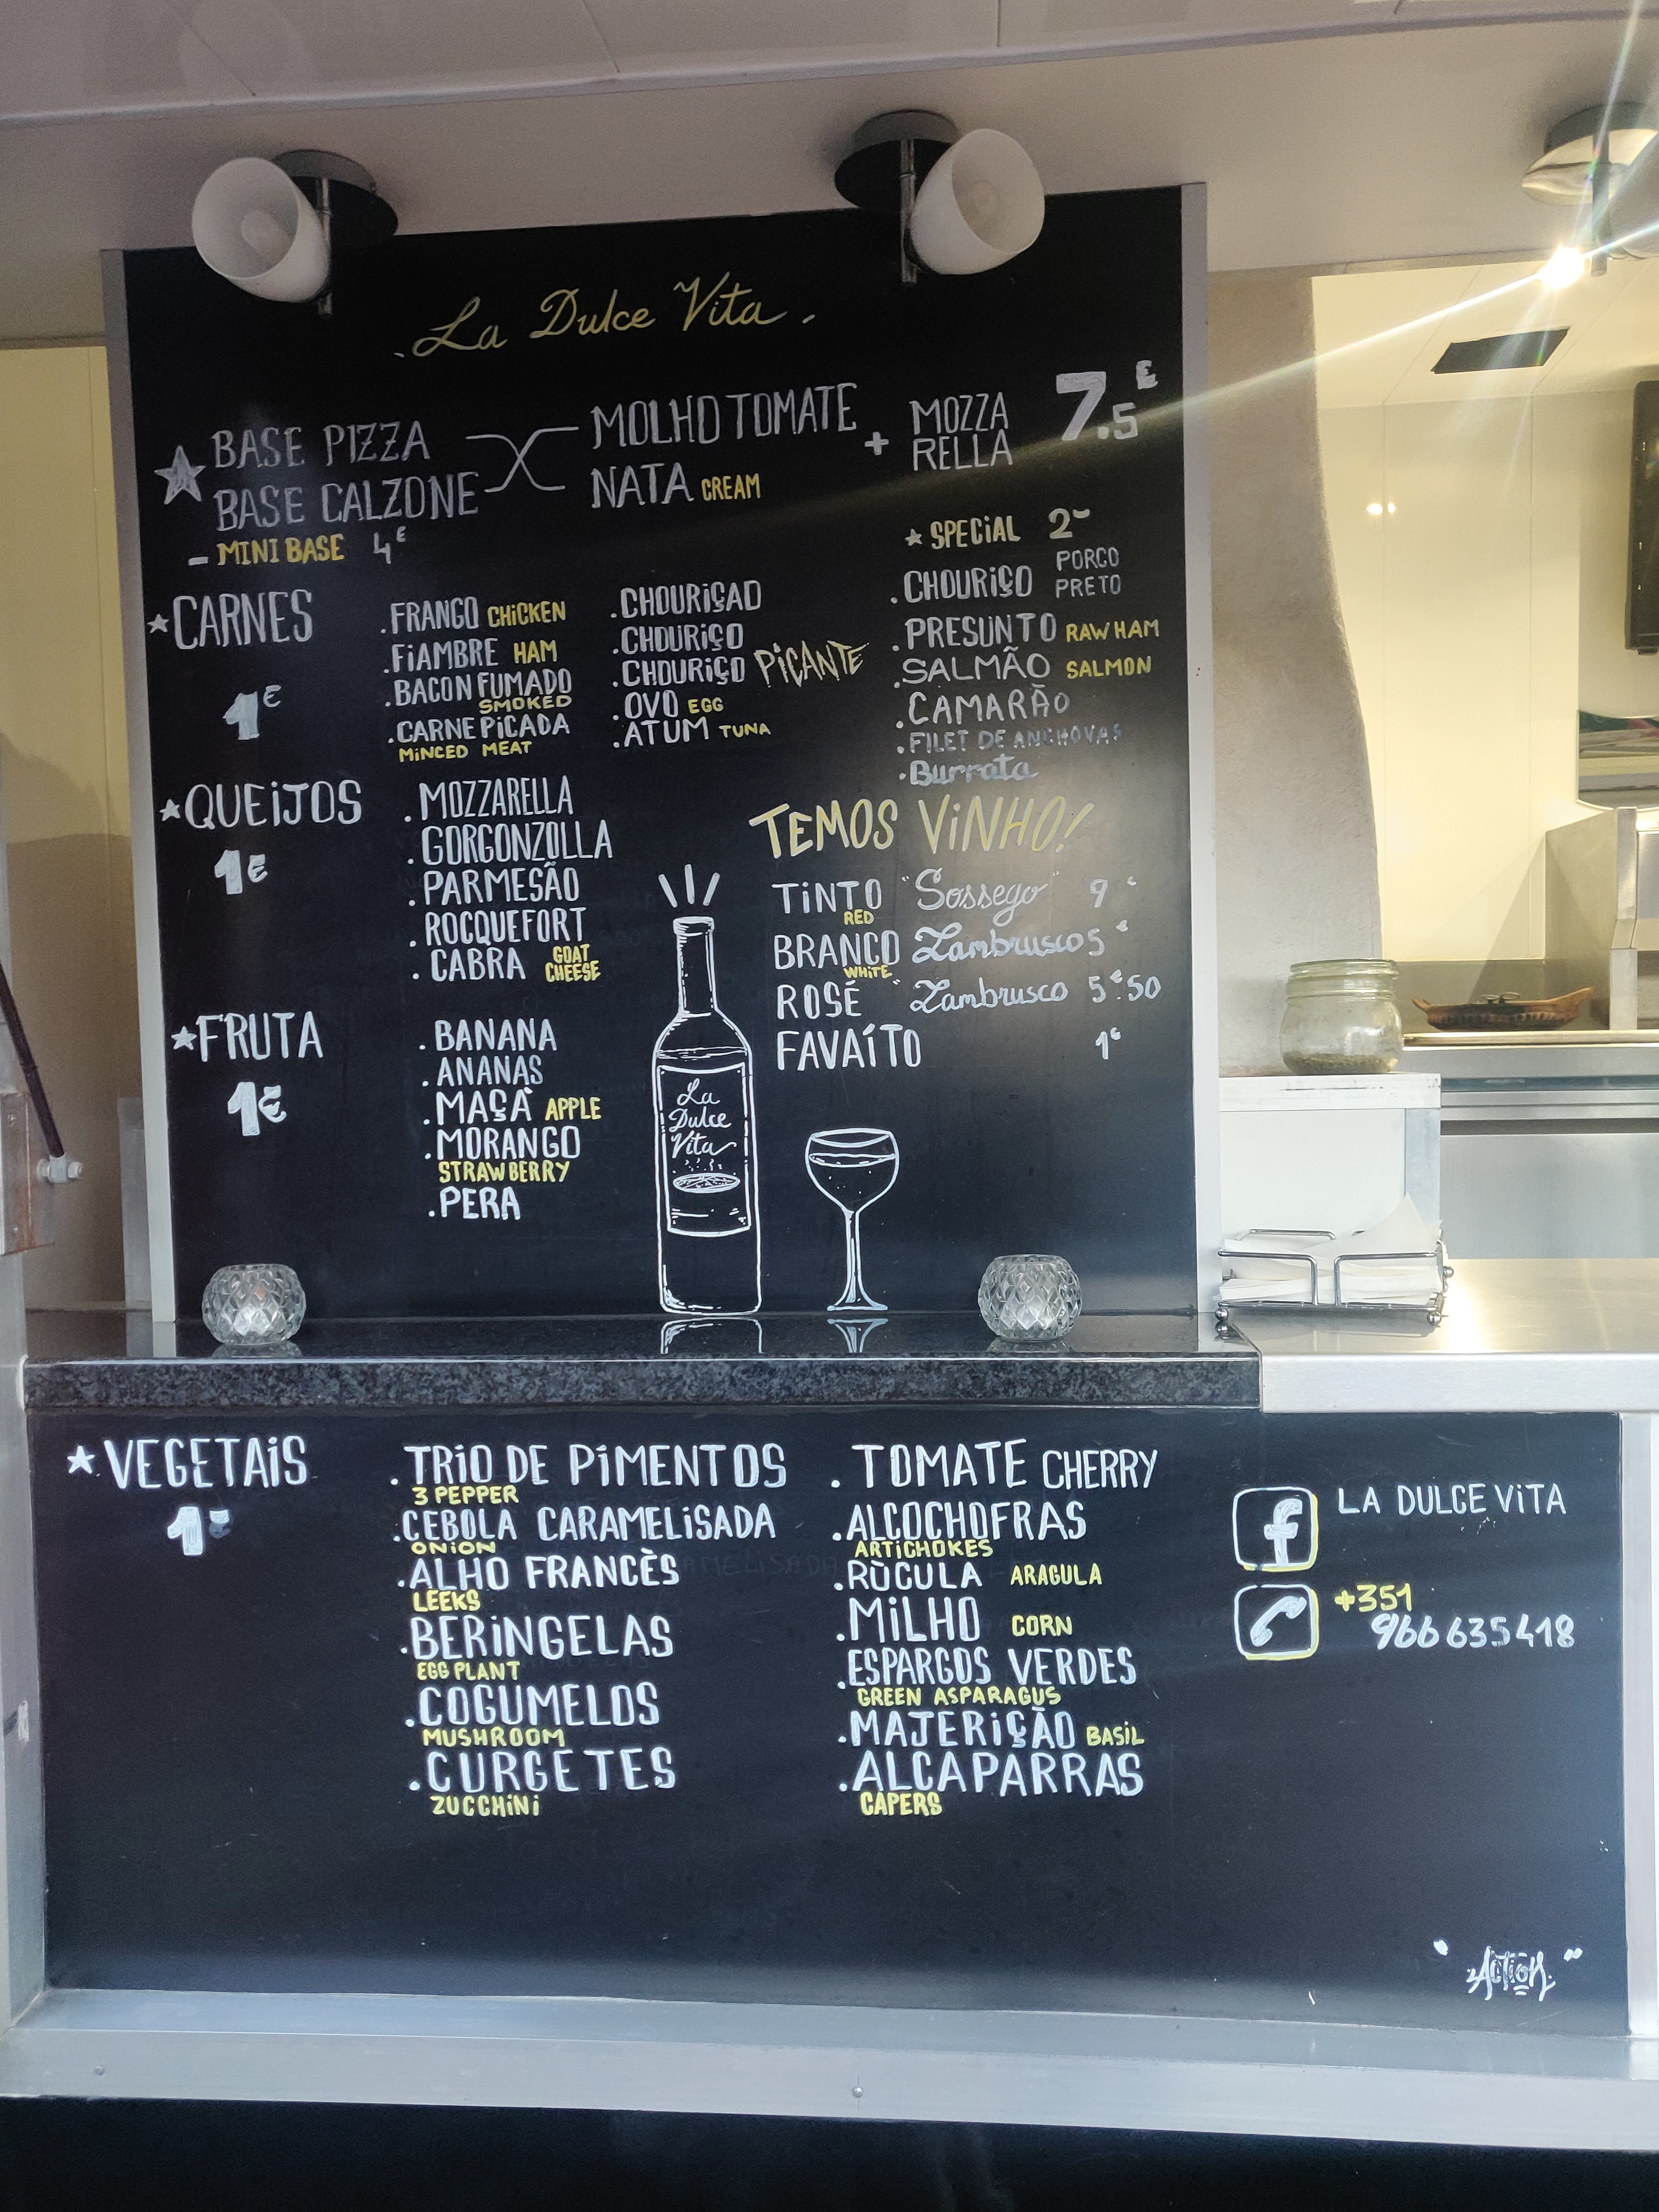 La Dulce Vita
BASE PIZZA
BASE CALZONE
MOLHO TOMATE
NATA CREAM
+ MOZZA
RELLA
7.5€
- MINI BASE 4€
CARNES
1€
. FRANGO CHICKEN
. FIAMBRE HAM
. BACON FUMADO
SMOKED
. CARNE PICADA
MINCED MEAT
. CHOURIÇAO
. CHOURIÇO
. CHOURIÇO PICANTE
. OVO EGG
. ATUM TUNA
SPECIAL 2
. CHOURIÇO PORCO
PRETO
. PRESUNTO RAW HAM
. SALMÃO SALMON
. CAMARÃO
. FILET DE ANCHOVAS
. Burrata
QUEIJOS
1€
. MOZZARELLA
. GORGONZOLLA
. PARMESÃO
. ROCQUEFORT
. CABRA GOAT
CHEESE
TEMOS VINHO!
TINTO "Sossego" 9€
RED
BRANCO Lambrusco 5€
WHITE
ROSÉ " Lambrusco 5€.50
FAVAÍTO 1€
FRUTA
1€
. BANANA
. ANANAS
. MAÇÀ APPLE
. MORANGO
STRAWBERRY
. PERA
La
Dulce
Vita
VEGETAIS
1€
. TRIO DE PIMENTOS
3 PEPPER
. CEBOLA CARAMELISADA
ONION
. ALHO FRANCÈS
LEEKS
. BERINGELAS
EGG PLANT
. COGUMELOS
MUSHROOM
. CURGETES
ZUCCHINI
. TOMATE CHERRY
. ALCOCHOFRAS
ARTICHOKES
. RÙCULA ARAGULA
. MILHO CORN
. ESPARGOS VERDES
GREEN ASPARAGUS
. MAJERIÇÃO BASIL
. ALCAPARRAS
CAPERS
f LA DULCE VITA
+351
966635418
"Action"